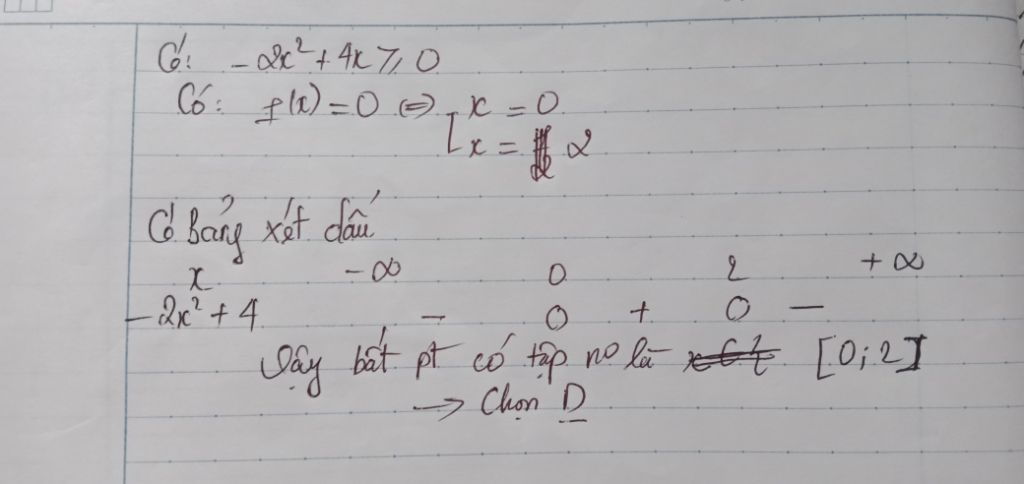 Có: -2x² + 4x ⩾ 0
Có: f(x) = 0 ⇔ [ x = 0
x = 2
Có Bảng xét dấu
x -∞ 0 2 +∞
-2x² + 4 - 0 + 0 -
Vậy bất pt có tập no là [0; 2]
→ Chọn D